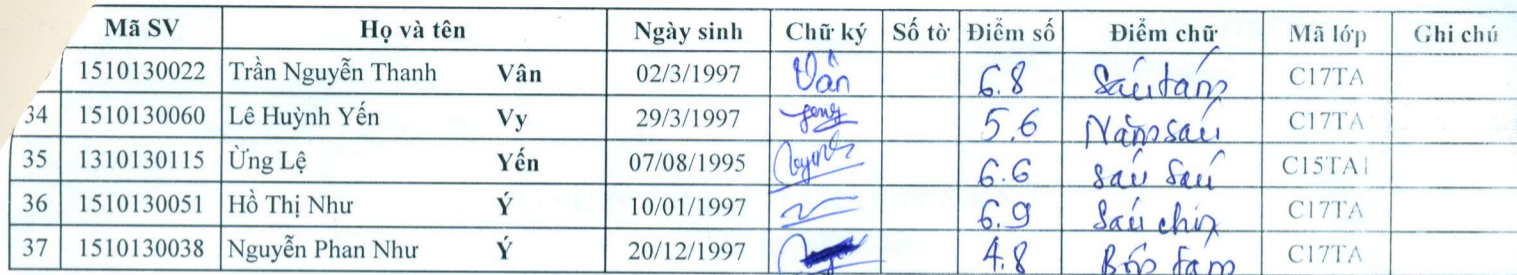 Mã SV Họ và tên Ngày sinh Chữ ký Số tờ Điểm số Điểm chữ Mã lớp Ghi chú
1510130022 Trần Nguyễn Thanh Vân 02/3/1997 Vân 6.8 Sáu tám C17TA
34 1510130060 Lê Huỳnh Yến Vy 29/3/1997 5.6 Năm sáu C17TA
35 1310130115 Ừng Lệ Yến 07/08/1995 6.6 Sáu Sáu C15TA1
36 1510130051 Hồ Thị Như Ý 10/01/1997 6.9 Sáu chín C17TA
37 1510130038 Nguyễn Phan Như Ý 20/12/1997 4.8 Bốn tám C17TA